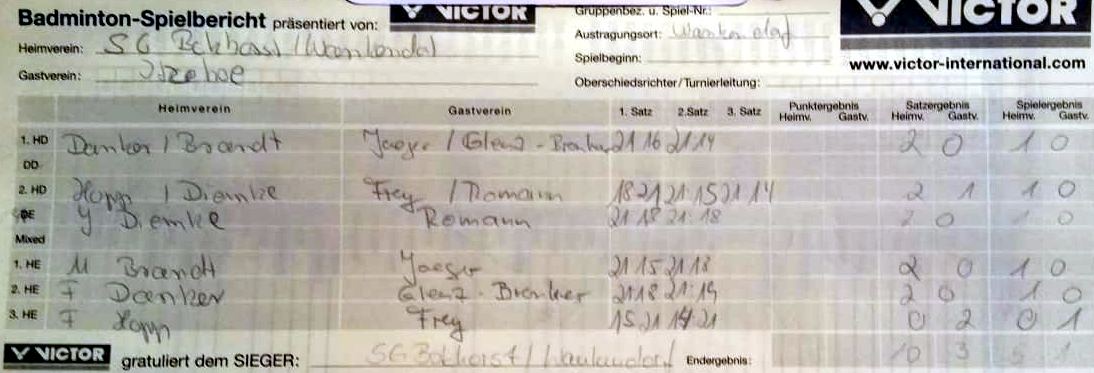 Badminton-Spielbericht präsentiert von: VICTOR
Gruppenbez. u. Spiel-Nr.:
VICTOR
Heimverein: SG Bokhorst / Wankendorf
Austragungsort: Wankendorf
Gastverein: Itzehoe
Spielbeginn:
www.victor-international.com
Oberschiedsrichter/Turnierleitung:
Heimverein Gastverein 1. Satz 2.Satz 3. Satz Punktergebnis Satzergebnis Spielergebnis
Heimv. Gastv. Heimv. Gastv. Heimv. Gastv.
1. HD Danker / Brandt Jaeger / Glenz - Bronker 21 16 21 14 2 0 1 0
DD
2. HD Hopp / Diemke Frey / Romann 18 21 21:15 21 14 2 1 1 0
DE Y Diemke Romann 21 18 21:18 2 0 1 0
Mixed
1. HE M Brandt Jaeger 21 15 21 18 2 0 1 0
2. HE F Danker Glenz - Bronker 21 18 21:19 2 0 1 0
3. HE F Hopp Frey 15 21 14 21 0 2 0 1
VICTOR gratuliert dem SIEGER: SG Bokhorst / Wankendorf Endergebnis: 10 3 5 1